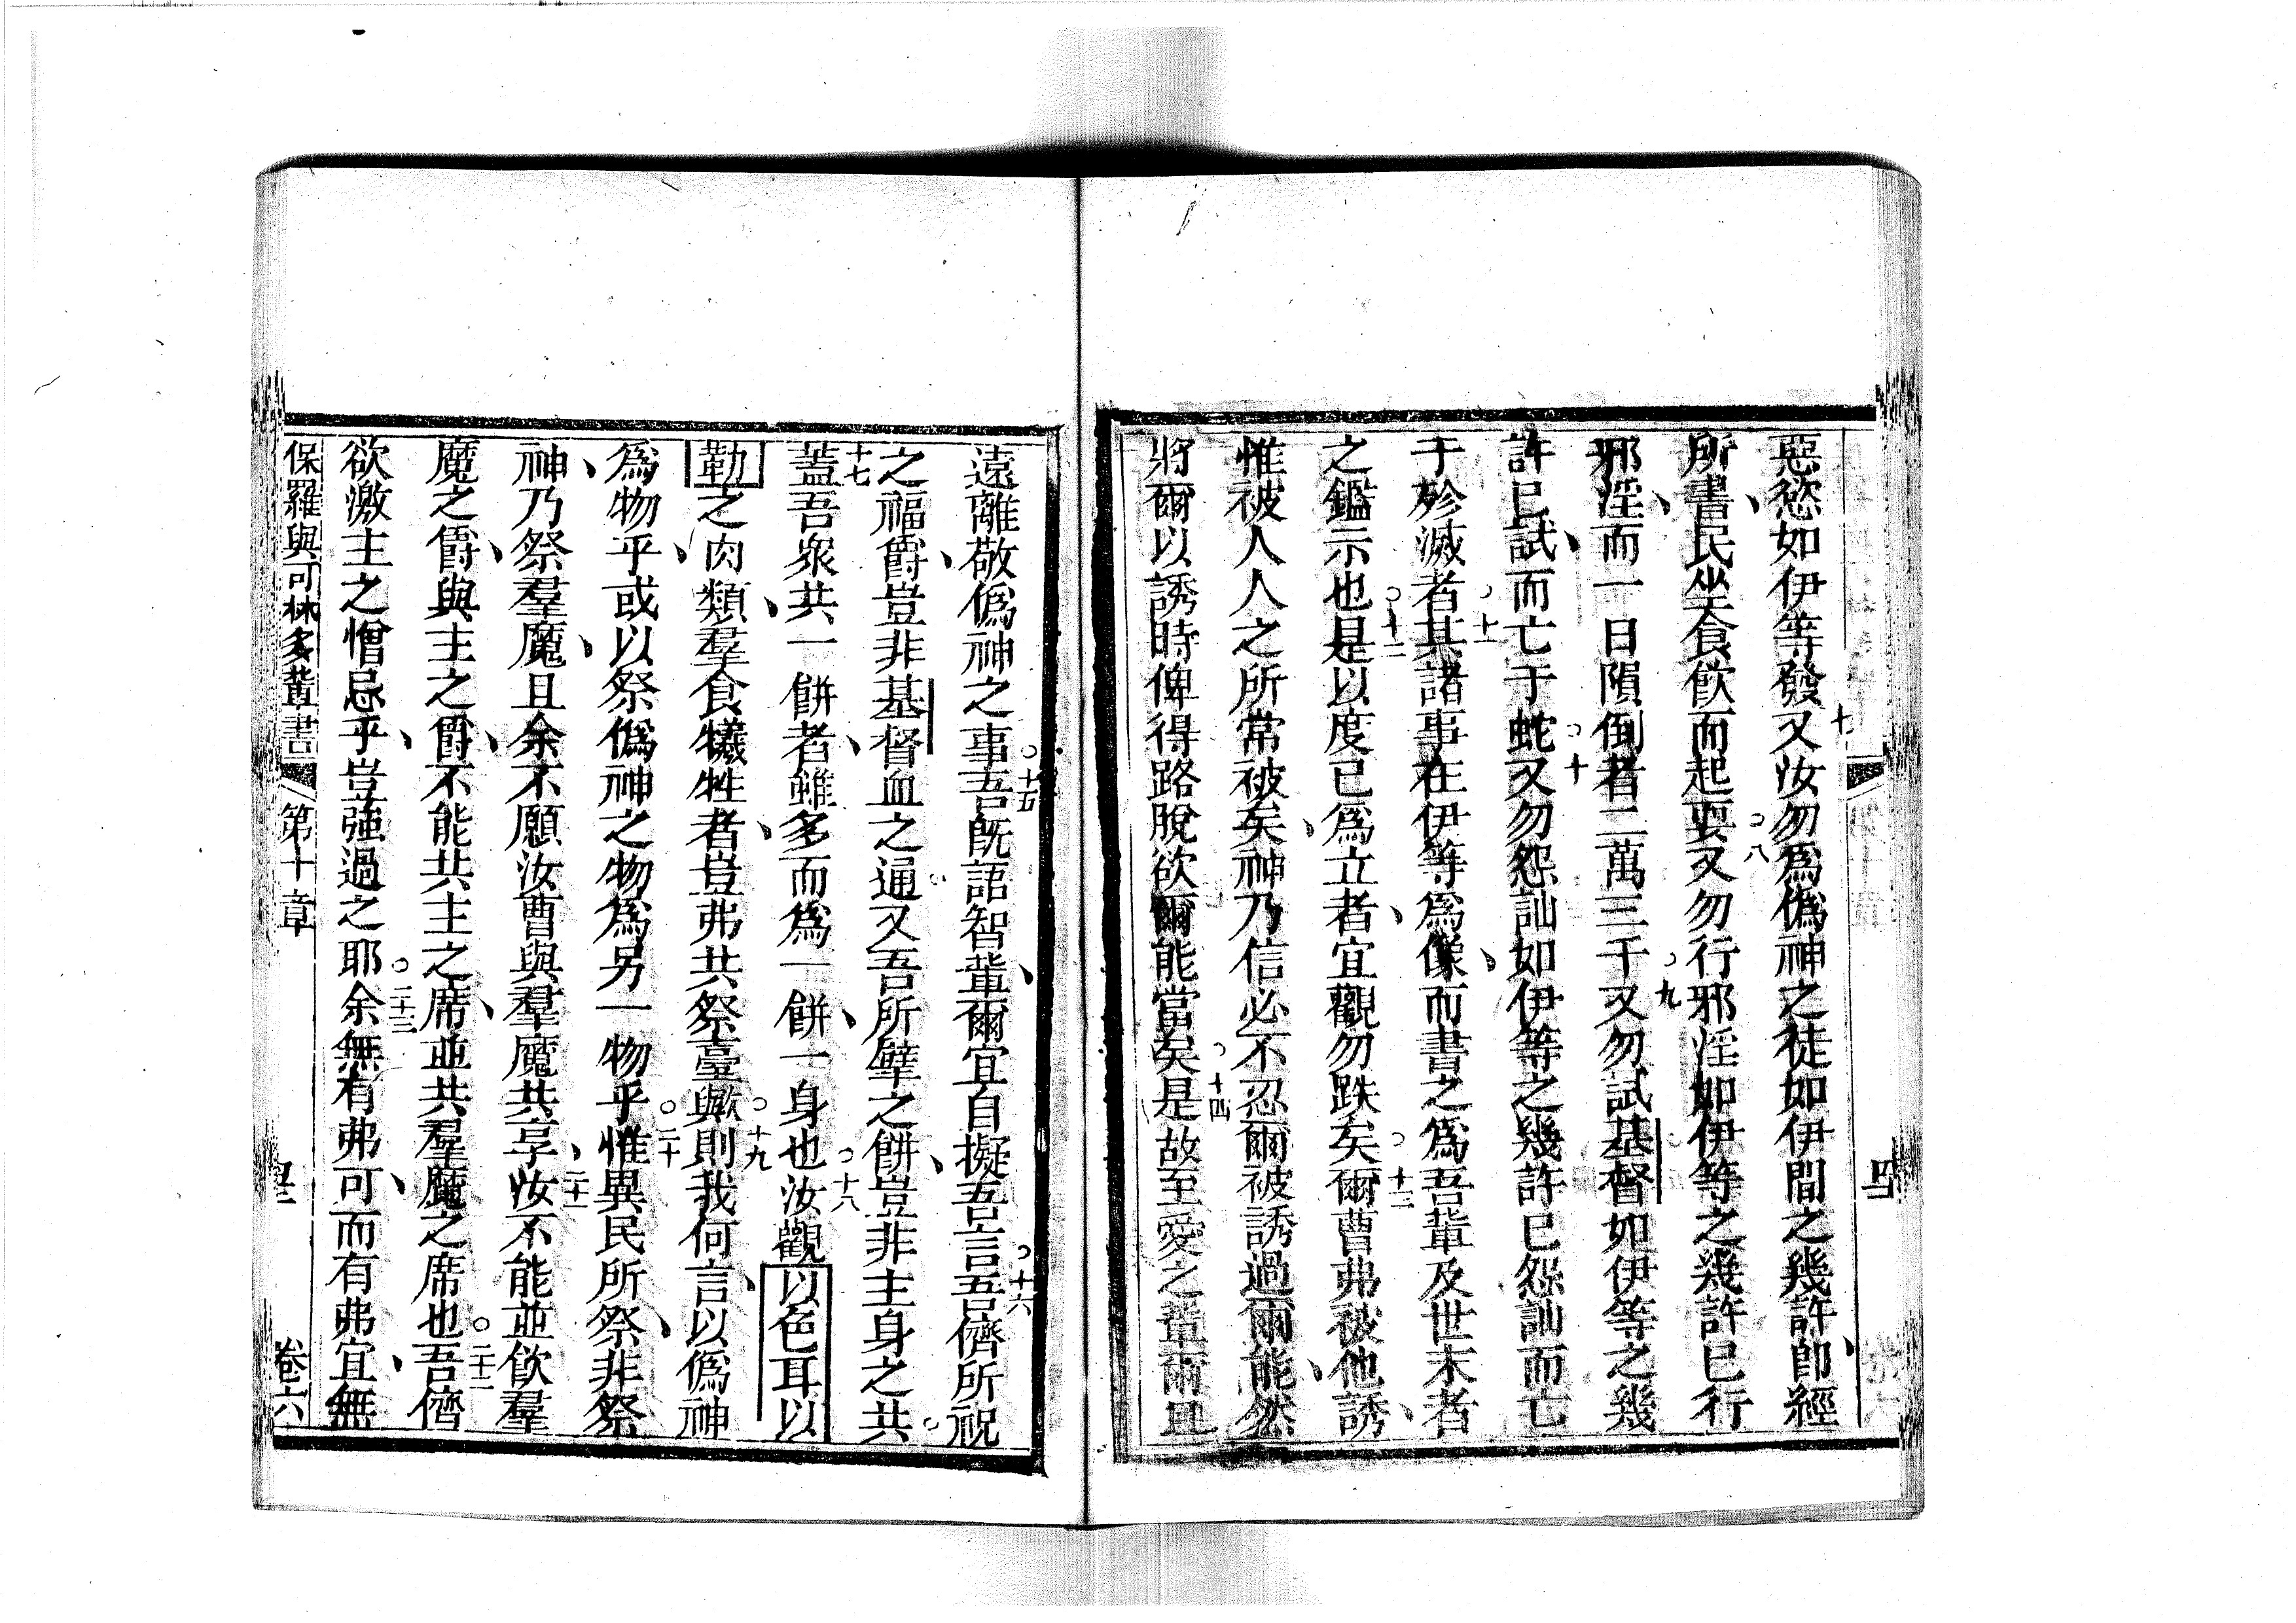 惡慾如伊等發七又汝勿爲僞神之徒如伊間之幾許、卽經
所書、民坐食飲而起耍○八又勿行邪淫如伊等之幾許已行
邪淫、而一日隕倒者二萬三千○九又勿試基督如伊等之幾
許已試、而亡于蛇○十又勿怨訕如伊等之幾許已怨訕而亡
于殄滅者○十一其諸事在伊等爲像、而書之爲吾輩及世末者
之鑑示也○十二是以度已爲立者、宜觀勿跌矣○十三爾曹弗被他誘、
惟被人人之所常被矣、神乃信必不忍爾被誘過爾能、然
將爾以誘時俾得路脫欲爾能當矣○十四是故至愛之輩爾且
遠離敬僞神之事○十五吾旣語智輩、爾宜自擬吾言○十六吾儕所祝
之福爵、豈非基督血之通○又吾所擘之餅、豈非主身之共○
十七蓋吾眾共一餅者、雖多而爲一餅、一身也○十八汝觀以色耳以
勒之肉類、羣食犧牲者、豈弗共祭臺歟○十九則我何言、以僞神
爲物乎、或以祭僞神之物爲另一物乎○二十惟異民所祭、非祭
神、乃祭羣魔、且余不願汝曹與羣魔共享、二十一汝不能並飲羣
魔之爵、與主之爵、不能共主之席、並共羣魔之席也○二十二吾儕
欲激主之憎忌乎、豈強過之耶○二十三余無有弗可、而有弗宜、無
保羅與可林多輩書 第十章 卷六